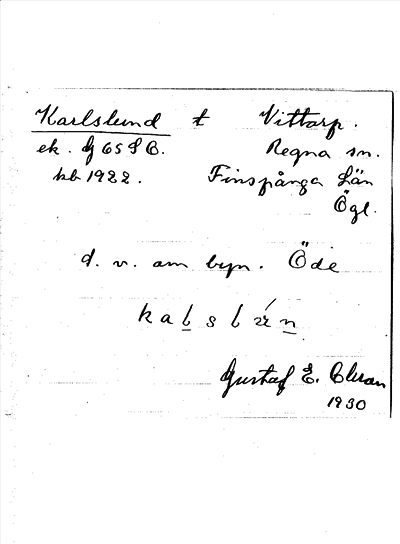 Karlslund t Vittorp.
ek. G 65 S B. Regna sn.
kb 1922. Finspånga Län
Ögl.
d. v. om byn. Öde
Gustaf E.
1930